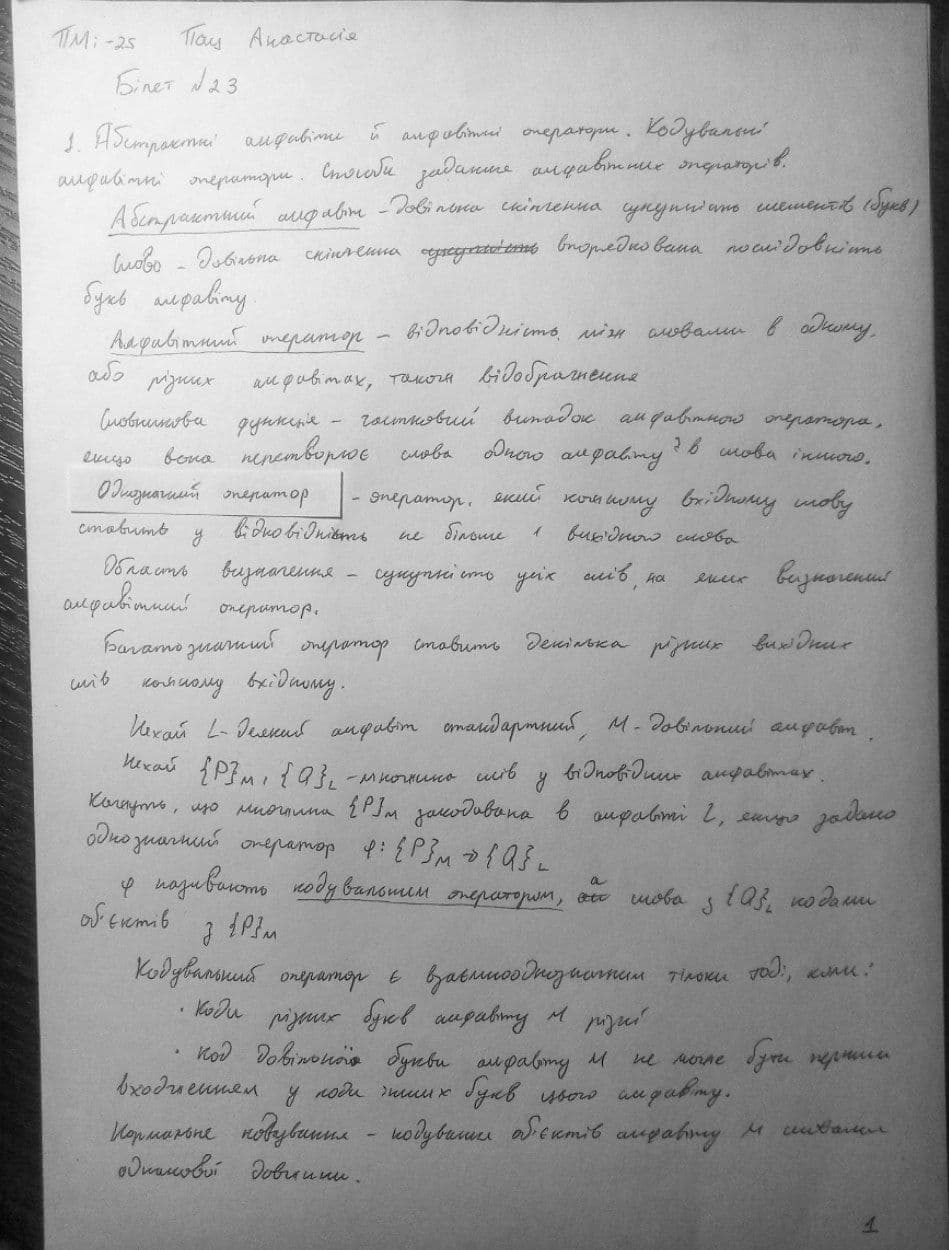 ПМі-25 Пац Анастасія
Білет №23
1. Абстрактні алфавіти й алфавітні оператори. Кодувальні
алфавітні оператори. Способи задання алфавітних операторів.
Абстрактний алфавіт - довільна скінченна сукупність елементів (букв)
Слово - довільна скінченна сукупність впорядкована послідовність
букв алфавіту.
Алфавітний оператор - відповідність між словами в одному
або різних алфавітах, також відображення
Словникова функція - частковий випадок алфавітного оператора,
якщо вона перетворює слова одного алфавіту в слова іншого.
Однозначний оператор - оператор, який кожному вхідному слову
ставить у відповідність не більше 1 вихідного слова
Область визначення - сукупність усіх слів, на яких визначений
алфавітний оператор.
Багатозначний оператор ставить декілька різних вихідних
слів кожному вхідному.
Нехай L - деякий алфавіт стандартний, M - довільний алфавіт.
Нехай {P}M, {Q}L - множина слів у відповідних алфавітах.
Кажуть, що множина {P}M закодована в алфавіті L, якщо задано
однозначний оператор φ: {P}M → {Q}L
φ називають кодувальним оператором, а слова з {Q}L кодами
об'єктів з {P}M
Кодувальний оператор є взаємнооднозначним тільки тоді, коли:
· Коди різних букв алфавіту M різні
· Код довільної букви алфавіту M не може бути першим
входженням у коди інших букв цього алфавіту.
Нормальне кодування - кодування об'єктів алфавіту M словами
однакової довжини.
1